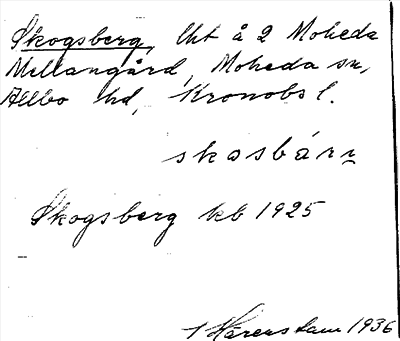 Skogsberg, lht å 2 Moheda
Mellangård, Moheda sn,
Allbo hd, Kronobs l.
skosbärṇ
Skogsberg kb 1925
1936